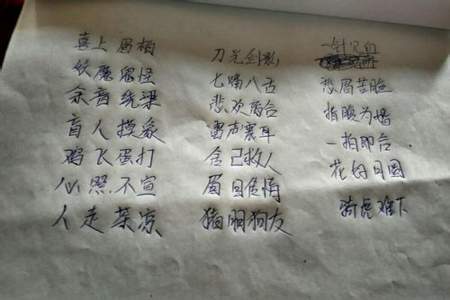 喜上眉梢
妖魔鬼怪
余音绕梁
盲人摸象
鸡飞蛋打
心照不宣
人走茶凉
刀光剑影
七嘴八舌
悲欢离合
雷声震耳
舍己救人
眉目传情
猪朋狗友
一针见血
愁眉苦脸
指腹为婚
一拍即合
花好月圆
骑虎难下